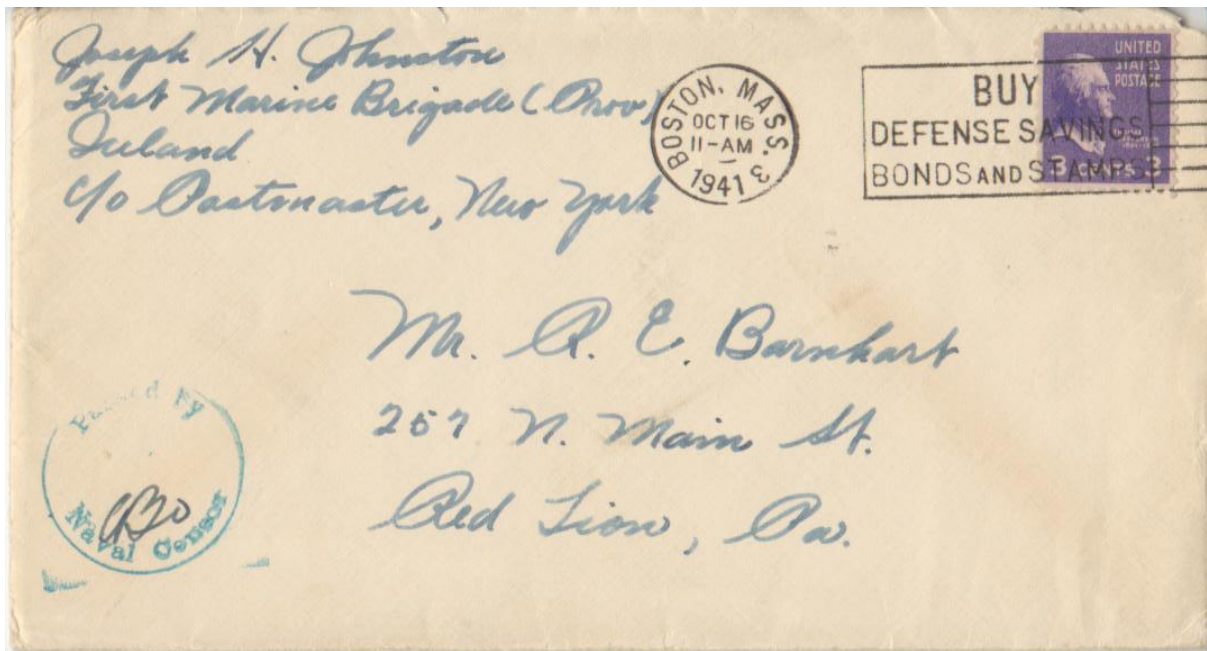 Joseph H. Johnston
First Marine Brigade (Prov)
Iceland
c/o Postmaster, New York
BOSTON, MASS. 3
OCT 16
11-AM
1941
BUY
DEFENSE SAVINGS
BONDS AND STAMPS
UNITED
STATES
POSTAGE
3 CENTS 3
Mr. R. E. Barnhart
257 N. Main St.
Red Lion, Pa.
Passed by
Naval Censor